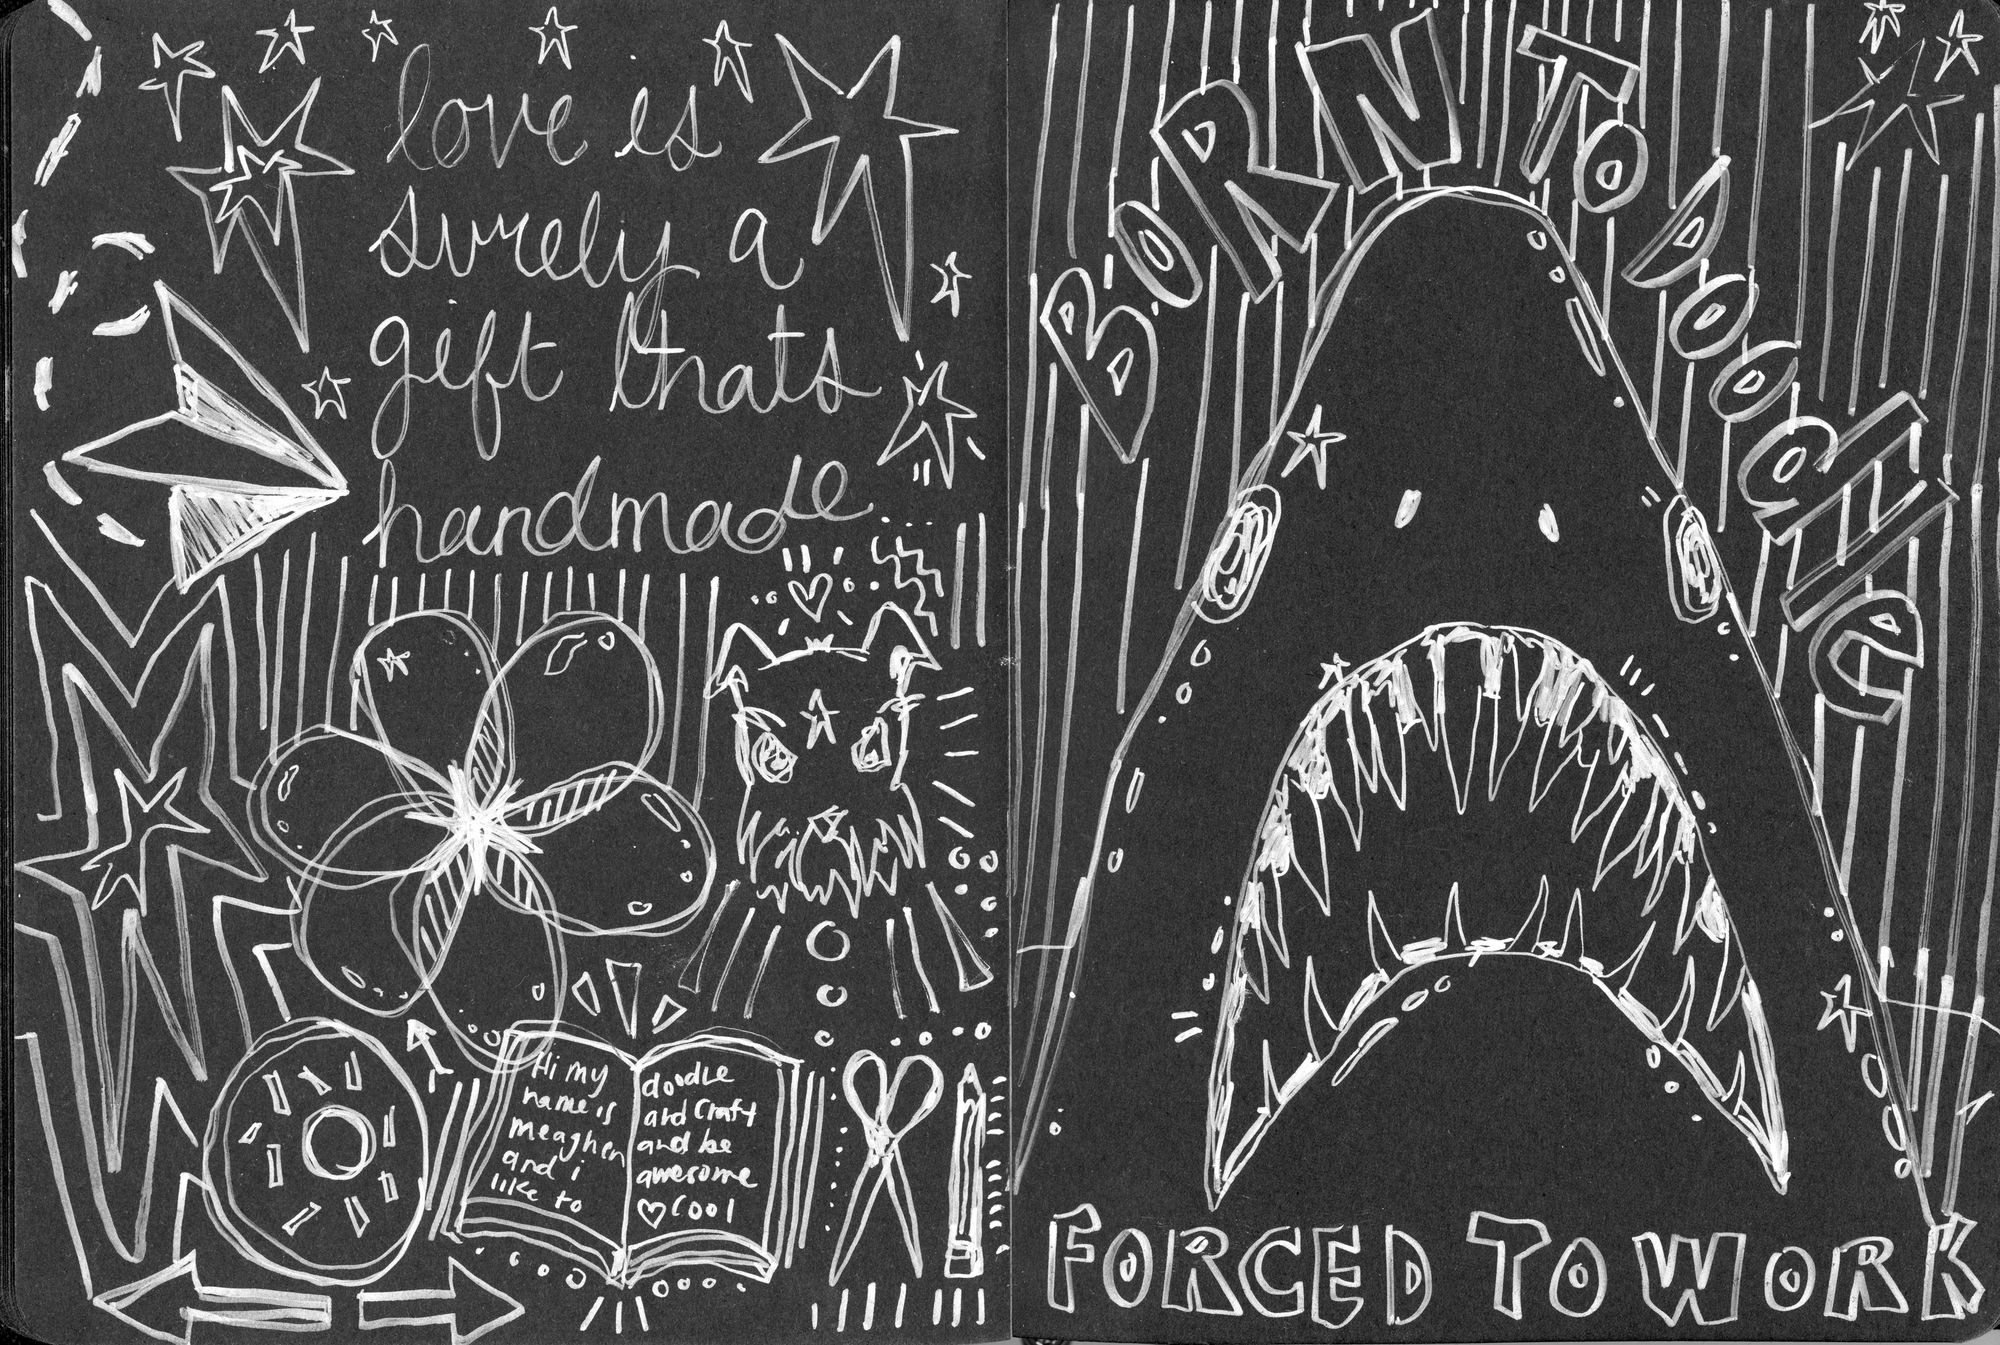 love is
surely a
gift thats
handmade
Hi my
name is
meaghen
and i
like to
doodle
and craft
and be
awesome
♡ cool
BORN TO DOODLE
FORCED TO WORK